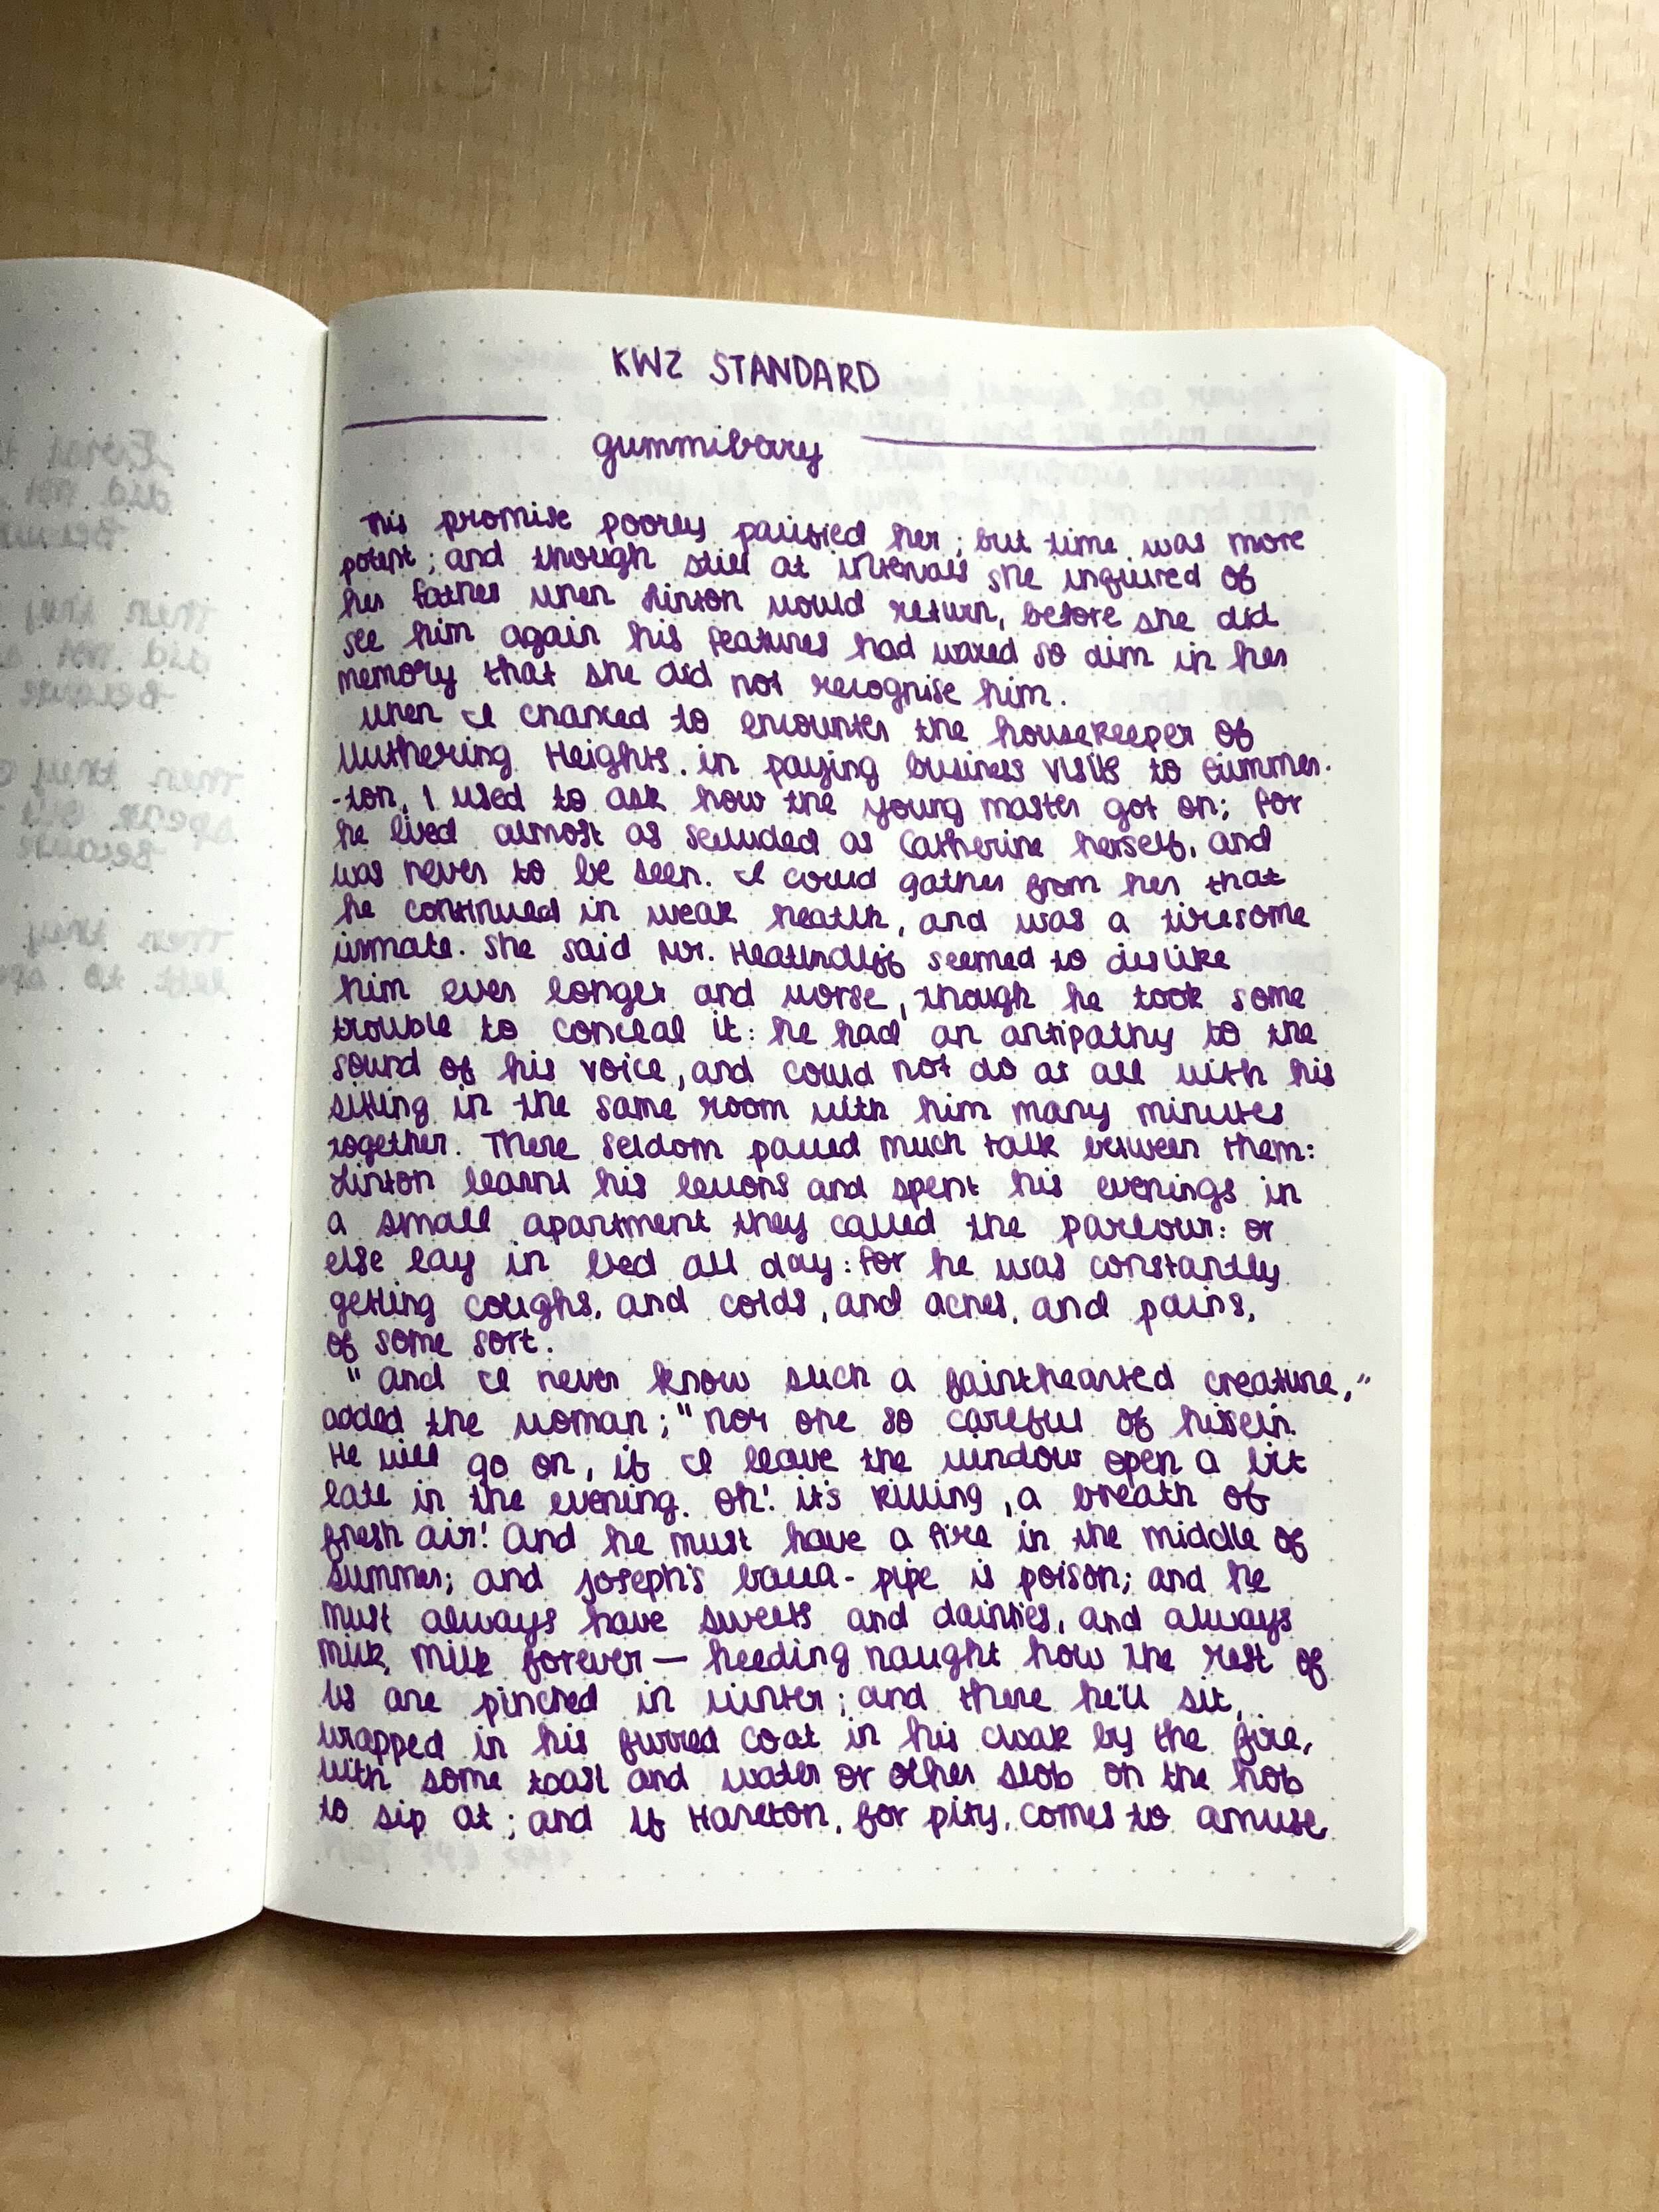 KWZ STANDARD
gummiberry
This promise poorly pacified her; but time was more
potent; and though still at intervals she inquired of
her father when Linton would return, before she did
see him again his features had waxed so dim in her
memory that she did not recognise him.
When I chanced to encounter the housekeeper of
Wuthering Heights. in paying business visits to Gimmer-
-ton, I used to ask how the young master got on; for
he lived almost as secluded as Catherine herself, and
was never to be seen. I could gather from her that
he continued in weak health, and was a tiresome
inmate. She said Mr. Heathcliff seemed to dislike
him ever longer and worse, though he took some
trouble to conceal it: he had an antipathy to the
sound of his voice, and could not do at all with his
sitting in the same room with him many minutes
together. There seldom passed much talk between them:
Linton learnt his lessons and spent his evenings in
a small apartment they called the parlour: or
else lay in bed all day: for he was constantly
getting coughs, and colds, and aches, and pains,
of some sort.
"And I never know such a fainthearted creature,"
added the woman; "nor one so careful of hisseln.
He will go on, if I leave the window open a bit
late in the evening. Oh! it's killing, a breath of
fresh air! And he must have a fire in the middle of
summer; and Joseph's bacca-pipe is poison; and he
must always have sweets and dainties, and always
milk, milk forever — heeding naught how the rest of
us are pinched in winter; and there he'll sit,
wrapped in his furred coat in his cloak by the fire,
with some toast and water or other slob on the hob
to sip at; and if Hareton, for pity, comes to amuse